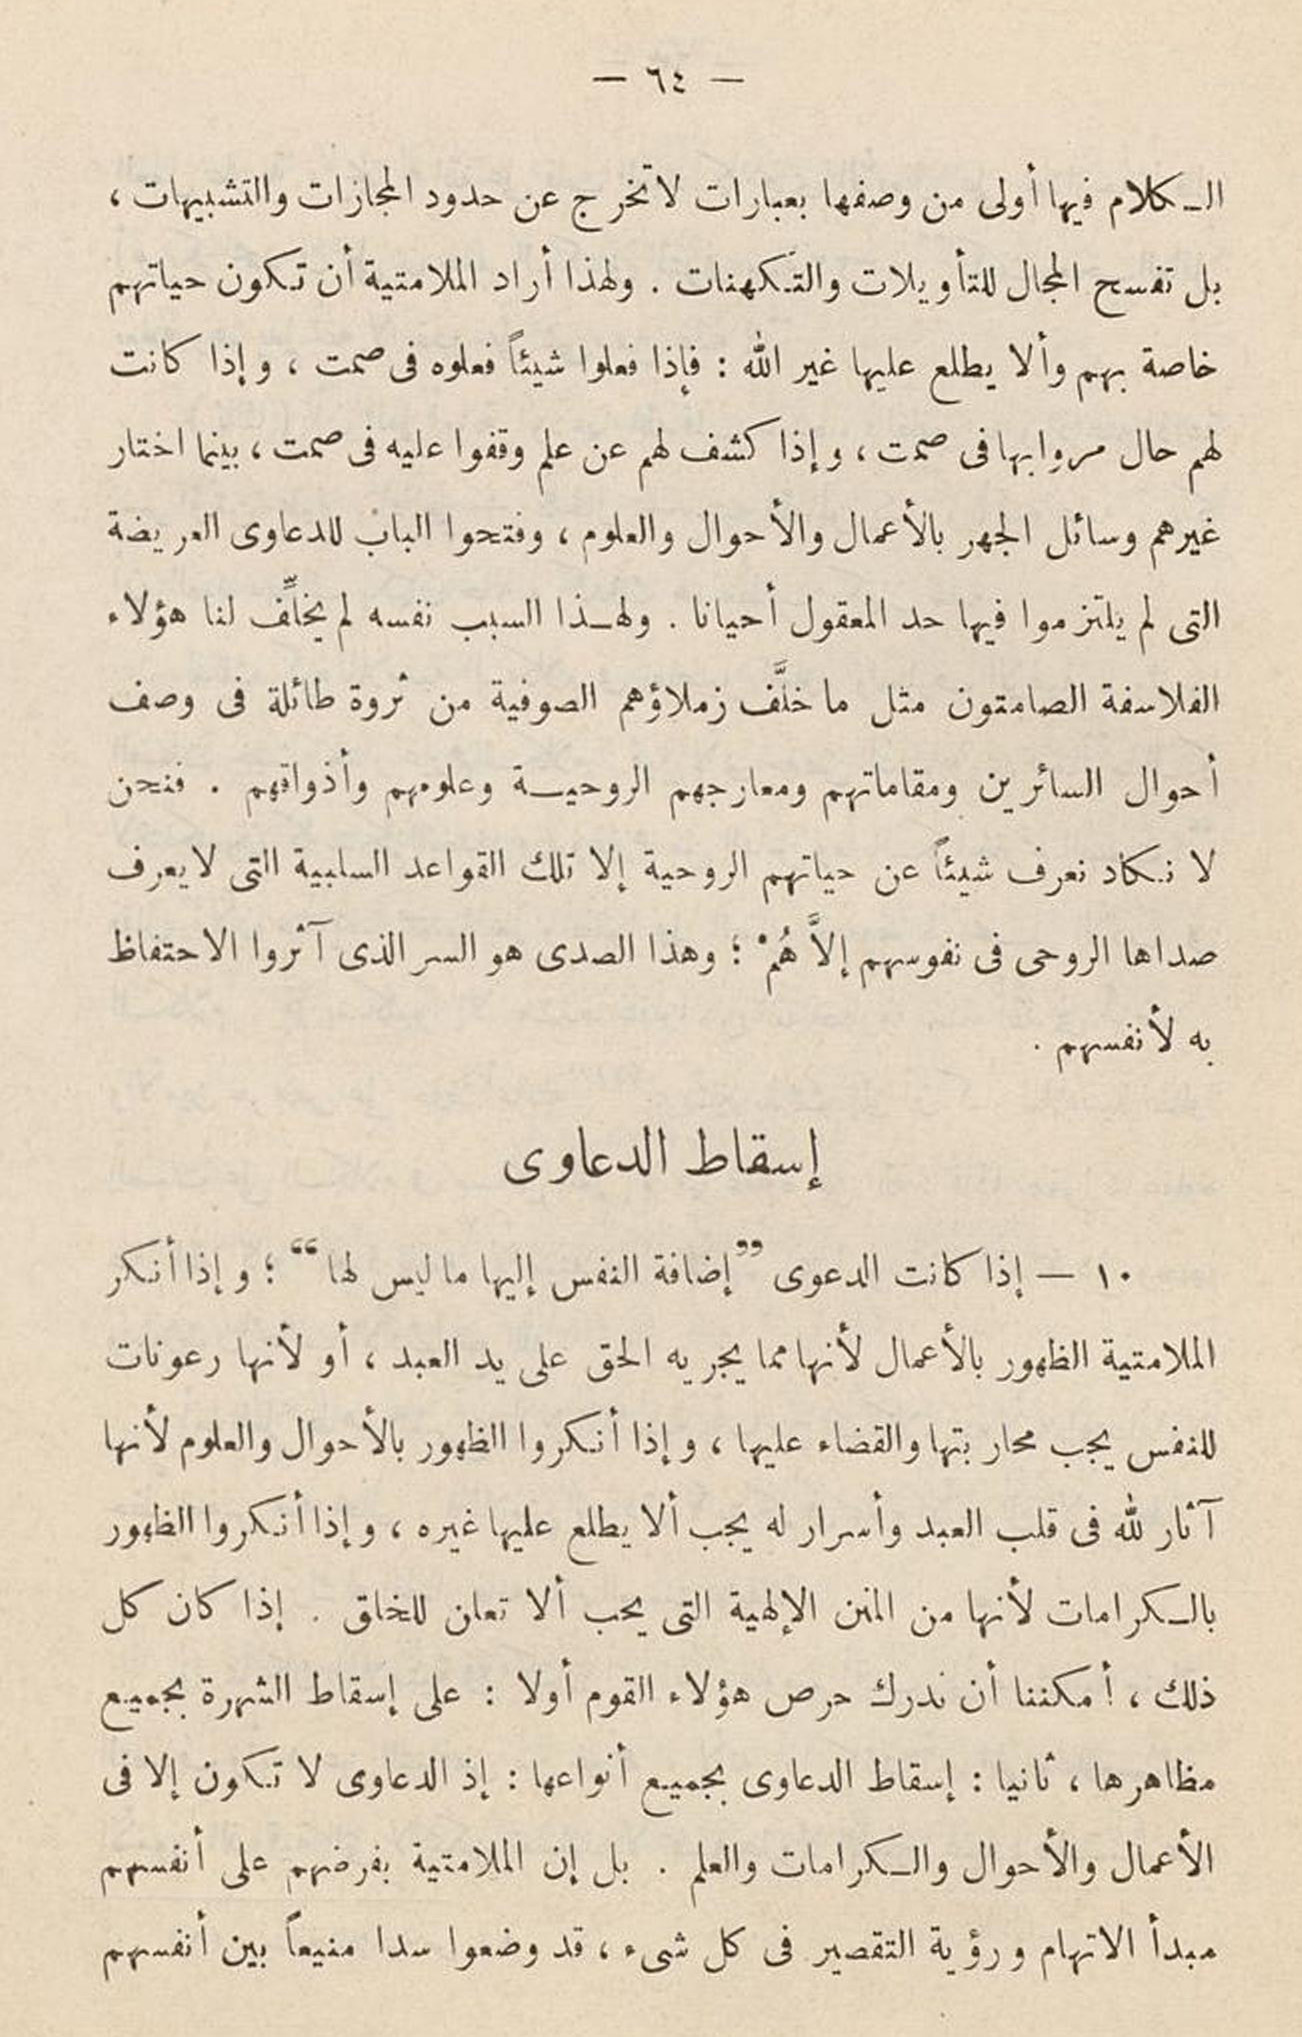 — ٦٤ —
الكلام فيها أولى من وصفها بعبارات لا تخرج عن حدود المجازات والتشبيهات ،
بل تفسح المجال للتأويلات والتكهنات . ولهذا أراد الملامتية أن تكون حياتهم
خاصة بهم وألا يطلع عليها غير الله : فإذا فعلوا شيئاً فعلوه فى صمت ، وإذا كانت
لهم حال مروا بها فى صمت ، وإذا كشف لهم عن علم وقفوا عليه فى صمت ، بينما اختار
غيرهم وسائل الجهر بالأعمال والأحوال والعلوم ، وفتحوا الباب للدعاوى العريضة
التى لم يلتزموا فيها حد المعقول أحيانا . ولهذا السبب نفسه لم يخلِّف لنا هؤلاء
الفلاسفة الصامتون مثل ما خلَّف زملاؤهم الصوفية من ثروة طائلة فى وصف
أحوال السائرين ومقاماتهم ومعارجهم الروحية وعلومهم وأذواقهم . فنحن
لا نكاد نعرف شيئاً عن حياتهم الروحية إلا تلك القواعد السلبية التى لا يعرف
صداها الروحى فى نفوسهم إلاَّ هُمْ ؛ وهذا الصدى هو السر الذى آثروا الاحتفاظ
به لأنفسهم .
إسقاط الدعاوى
١٠ — إذا كانت الدعوى ”إضافة النفس إليها ما ليس لها“ ؛ وإذا أنكر
الملامتية الظهور بالأعمال لأنها مما يجريه الحق على يد العبد ، أو لأنها رعونات
للنفس يجب محاربتها والقضاء عليها ، وإذا أنكروا الظهور بالأحوال والعلوم لأنها
آثار لله فى قلب العبد وأسرار له يجب ألا يطلع عليها غيره ، وإذا أنكروا الظهور
بالكرامات لأنها من المنن الإلهية التى يجب ألا تعلن للخلق . إذا كان كل
ذلك ، أمكننا أن ندرك حرص هؤلاء القوم أولا : على إسقاط الشهرة بجميع
مظاهرها ، ثانيا : إسقاط الدعاوى بجميع أنواعها : إذ الدعاوى لا تكون إلا فى
الأعمال والأحوال والكرامات والعلم . بل إن الملامتية بفرضهم على أنفسهم
مبدأ الاتهام ورؤية التقصير فى كل شىء ، قد وضعوا سدا منيعاً بين أنفسهم